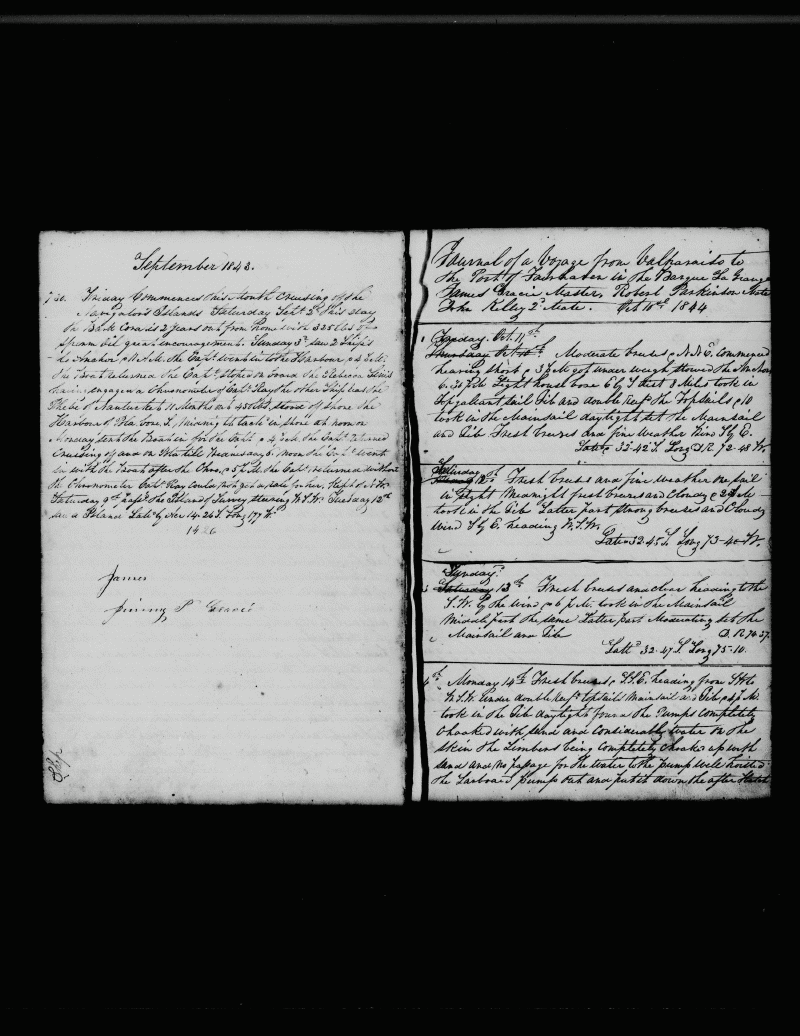 September 1843.
Friday Commences this Month Cruising off the
Navigators Islands Saturday Sept 2d This day
the Bark Cora is 2 years out from home with 325 bbls of
Sperm Oil great encouragement. Sunday 3d saw 2 Ships
at Anchor A.M. the Capt went into the Harbour 4 P.M.
the Boat returned the Capt on board the Rebecca Sims
having engaged a Chronometer of Capt Ray the other Ship was the
Phebe of Nantucket 11 Months out 450 bbls stood off shore the
Harbour of
Monday sent the Boat in for the Capt 4 P.M. the Capt returned
Cruising off and on Wednesday 6th Noon the Capt went
in with the Boat after the Chro. 5 P.M. the Capt returned without
the Chronometer Capt Ray could not get a rate for her, kept off
Saturday 9th passed the Island of steering W.S.W. Tuesday 12th
saw a Island Lat by 14-24 S. Long 177 W.
14 6
James
Jimmy P
Ship
Journal of a Voyage from Valparaiso to
the Port of Fairhaven in the Barque La Grange
James Gracie Master, Robert Parkinson Mate
John Kelley 2d Mate. Oct 10th 1844
Friday. Oct. 11th
Thursday Oct 10th Moderate breezes N.N.E. Commenced
heaving short 3 P.M. got under weigh, stowed the Anchors
6.30 P.M. Light house bore E by S dist 8 Miles took in
topgallant sail Jib and double reef the Topsails 10
took in the Mainsail daylight set the Mainsail
and Jib Fresh breezes and fine weather Wind S by E.
Lat 33-42 S. Long D.R. 72-48 W.
Saturday
12th Fresh breezes and fine weather one sail
in sight Midnight fresh breezes and Cloudy 2 A.M.
took in the Jib Latter part strong breezes and Cloudy
Wind S by E. heading W.S.W.
Latt 32.45 S. Long 73-40 W.
Sunday
Saturday 13th Fresh breezes and clear heading to the
S.W. by the wind 6 P.M. took in the Mainsail
Middle part the same Latter part Moderating set the
Mainsail and Jib D.R. 74.37.
Latt 32.47 S. Long 75-10.
Monday 14th Fresh breezes S.S.E. heading from S.W. to
W.S.W. Under double reeft topsails Mainsail and Jib
took in the Jib daylight found the Pumps completely
choaked with sand and considerable water on the
skin the Limbers being completely choaked up with
sand and no passage for the water to the pump well hoisted
the Larboard pump out and put it down the after Hatch